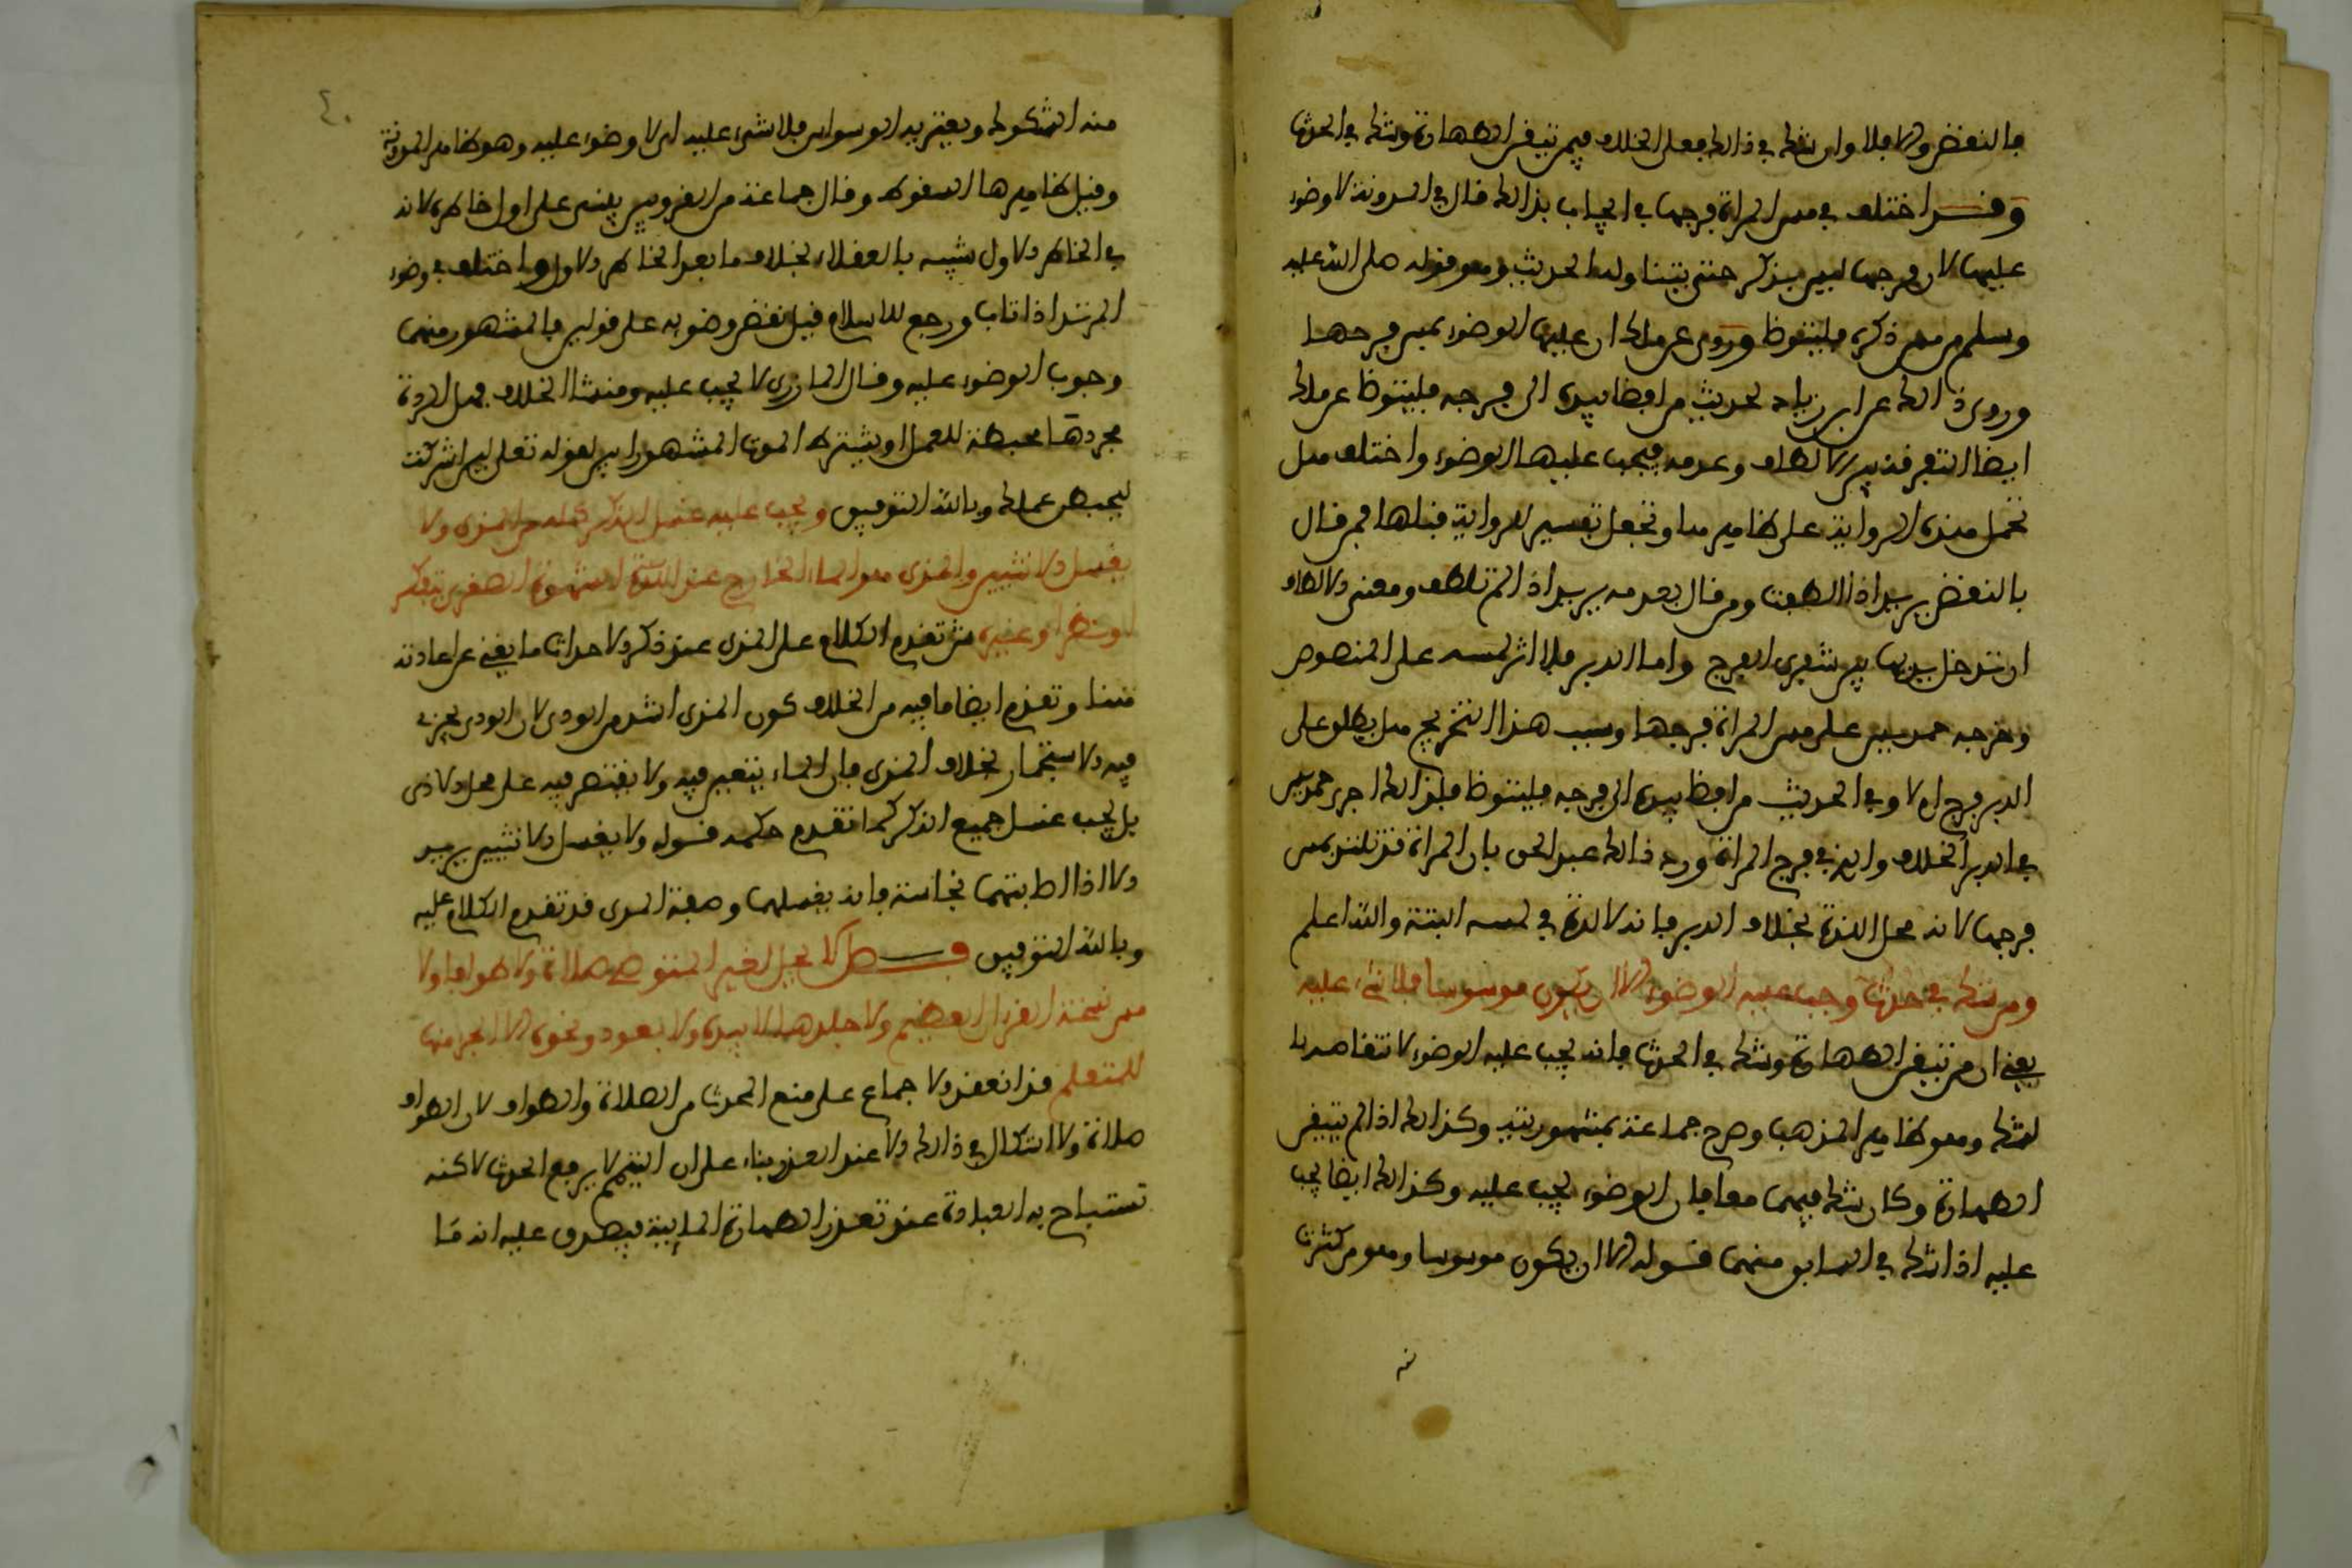 فالنقض وإلا فلا وإن شك في ذلك فعلى الخلاف فيمن تيقن الطهارة وشك في الحدث
وقد اختلف في مس المرأة فرجها في إيجاب بذلك قال في المدونة لا وضوء
عليها لأن فرجها ليس بذكر حتى يتناوله الحديث وهو قوله صلى الله عليه
وسلم من مس ذكره فليتوضأ وروي عن مالك أن عليها الوضوء بمس فرجها
وروى ذلك عن ابن زياد لحديث من أفضى بيده إلى فرجه فليتوضأ عن مالك
أيضا التفرقة بين الإلطاف وعدمه فيجب عليها الوضوء واختلف هل
تحمل هذه الروايات على ظاهرها وتجعل تفسير الرواية قبلها فمن قال
بالنقض يريد إذا ألطفت ومن قال بعدمه يريد إذا لم تلطف ومعنى الإلطاف
أن تدخل يديها بين شفري الفرج وأما الدبر فلا أثر لمسه على المنصوص
وخرجه حمديس على مس المرأة فرجها وسبب هذا التخريج هل يطلق على
الدبر فرج أم لا وفي الحديث من أفضى بيده إلى فرجه فليتوضأ فلذلك أجرى حمديس
في الدبر الخلاف والذي في فرج المرأة ورد ذلك عبد الحق بأن المرأة قد تلتذ بمس
فرجها لأنه محل اللذة بخلاف الدبر فإنه لا لذة في لمسه البتة والله أعلم
ومن شك في حدث وجب عليه الوضوء إلا أن يكون موسوسا فلا شيء عليه
يعني أن من تيقن الطهارة وشك في الحدث فإنه يجب عليه الوضوء لانتقاضه بال
لشك وهو ظاهر المذهب وصرح جماعة بمشهوريته وكذلك إذا لم يتيقن
الطهارة وكان شك فيهما معا فإن الوضوء يجب عليه وكذلك أيضا يجب
عليه إذا شك في السابق منهما قوله إلا أن يكون موسوسا وهو من كثرت
منه الشكوك ويعتريه الوسواس فلا شيء عليه أي لا وضوء عليه وهو ظاهر المدونة
وقيل ظاهرها السقوط وقال جماعة من القرويين يبني على أول خاطره لأنه
في الخاطر الأول شبيه بالعقلاء بخلاف ما بعد الخاطر الأول واختلف في وضوء
المرتد إذا تاب ورجع للإسلام قبل نقض وضوئه على قولين فالمشهور منهما
وجوب الوضوء عليه وقال المازري لا يجب عليه ومنشأ الخلاف هل الردة
بمجردها محبطة للعمل أو يشترط الموت المشهور لقوله تعالى لئن أشركت
ليحبطن عملك وبالله التوفيق ويجب عليه غسل الذكر كله من المذي ولا
يغسل الأنثيين والمذي هو الماء الخارج عند اللذة الشهوة الصغرى بتفكر
أو نظر أو غيره قد تقدم الكلام على المذي عند ذكر الأحداث ما يغني عن إعادته
هنا وتقدم أيضا ما فيه من الخلاف كون المذي أشد من الودي لأن الودي يجزئ
فيه الاستجمار بخلاف المذي فإن الماء يتعين فيه ولا يقتصر فيه على محل الأذى
بل يجب غسل جميع الذكر كما تقدم حكمه قوله ولا يغسل الأنثيين يريد
إلا إذا أصابتهما نجاسة فإنه يغسلهما وصفة المذي قد تقدم الكلام عليه
وبالله التوفيق فصل لا يحل لغير المتوضئ صلاة ولا طواف ولا
مس نسخة القرءان العظيم ولا جلدها لا بيده ولا بعود ونحوه إلا الجزء منها
للمتعلم قد انعقد الإجماع على منع المحدث من الصلاة والطواف لأن الطواف
صلاة ولا إشكال في ذلك إلا عند العذر بناء على أن التيمم لا يرفع الحدث لاكنه
تستباح به العبادة عند تعذر الطهارة المايية فيصدق عليه أنه ما